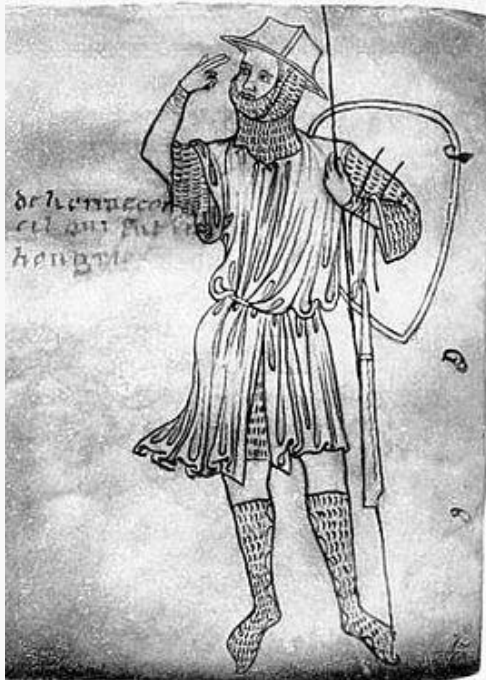 de honecor
cil qui fut en
hongrie